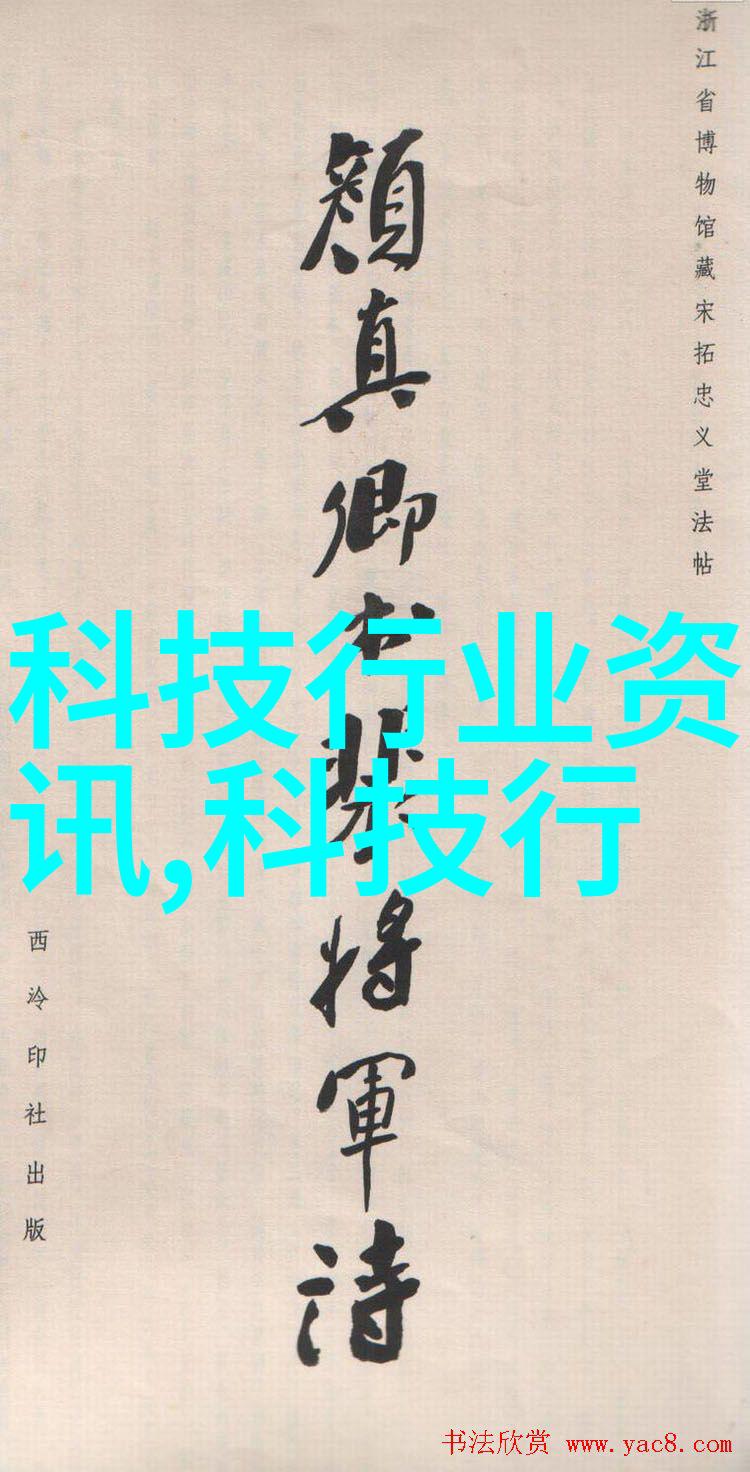 浙江省博物馆藏宋拓忠义堂法帖
顏真卿书裴将軍诗
科技行业资
讯,科技行
西泠印社出版
书法欣赏 www.yac8.com